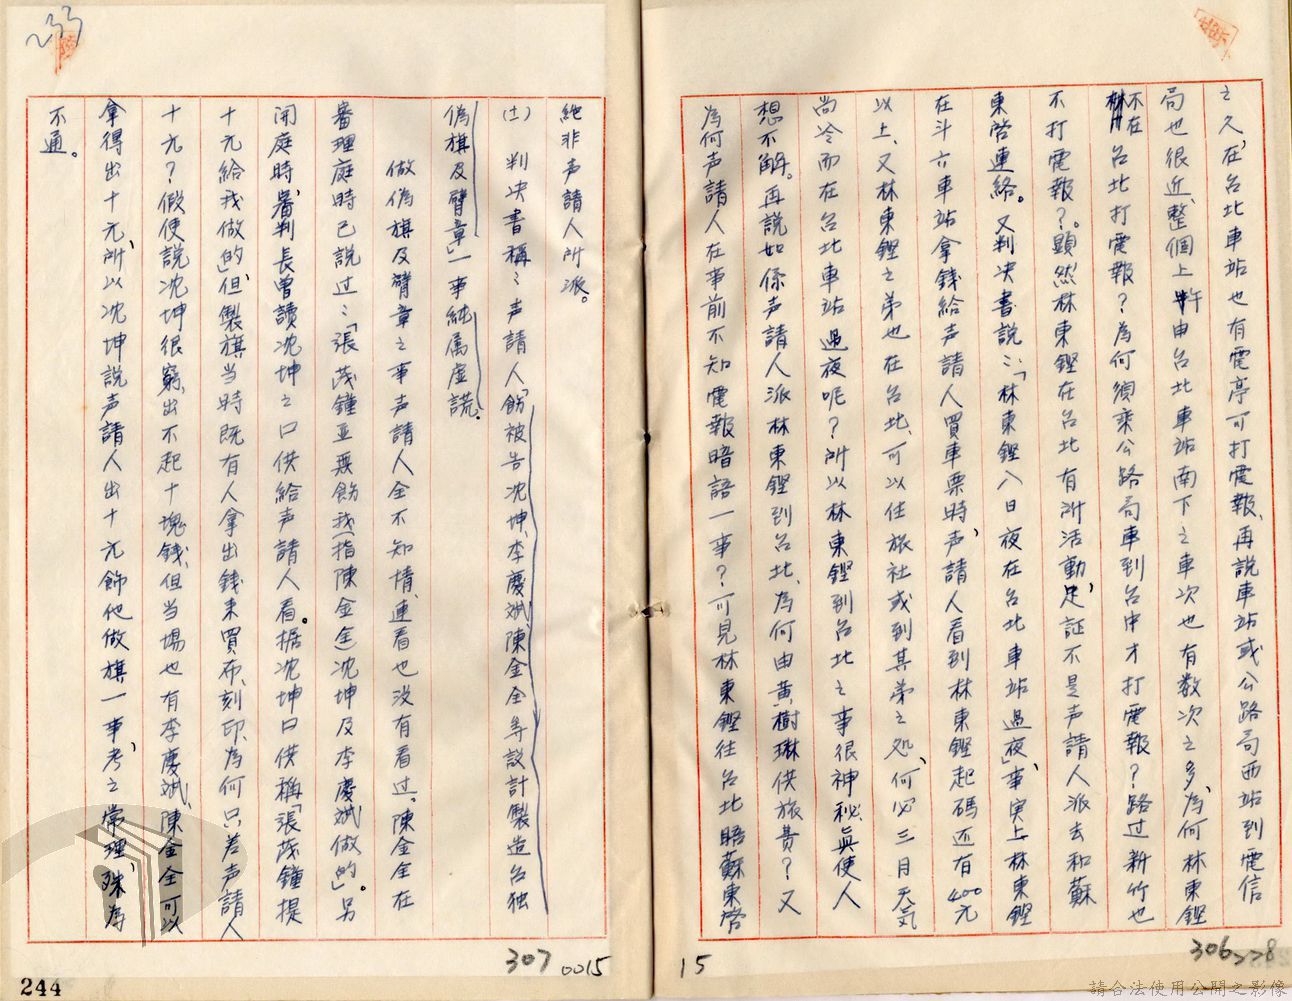 之久,在台北車站也有電亭可打電報、再說車站或公路局西站到電信
局也很近、整個上午由台北車站南下之車次也有数次之多、為何林東鏗
不在台北打電報?為何須乘公路局車到台中才打電報?路过新竹也
不打電報?。顯然林東鏗在台北有所活動,足証不是声請人派去和蘇
東啓連絡。又判决書説:「林東鏗八日夜在台北車站過夜」事、实上林東鏗
在斗六車站拿錢給声請人買車票時,声請人看到林東鏗起碼还有400元
以上、又林東鏗之弟也在台北、可以住旅社或到其弟之処、何必三月天気
尚冷而在台北車站過夜呢?所以林東鏗到台北之事很神秘、真使人
想不解。再説如係声請人派林東鏗到台北、為何由黄樹琳供旅費?又
為何声請人在事前不知電報暗語一事?可見林東鏗往台北晤蘇東啓
絶非声請人所派。
(十一) 判决書稱:声請人「飭被告沈坤、李慶斌、陳金全等設計製造台独
偽旗及臂章」一事純属虚謊。
做偽旗及臂章之事声請人全不知情、連看也没有看过。陳金全在
審理庭時已説过:「張茂鐘並無飭我(指陳金全)沈坤及李慶斌做的」。另
開庭時、審判長曽讀沈坤之口供給声請人看。据沈坤口供稱「張茂鐘提
十元給我做的」、但製旗当時既有人拿出錢来買布、刻印、為何只差声請人
十元?假使說沈坤很窮、出不起十塊錢、但当場也有李慶斌、陳金全可以
拿得出十元、所以沈坤説声請人出十元飾他做旗一事、考之常理、殊為
不通。
233
307
0015
15
306
244
請合法使用公開之影像